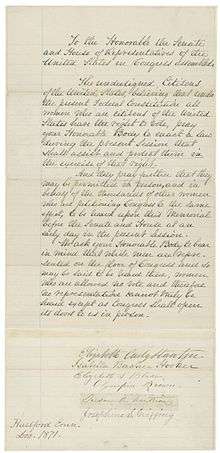 To the Honorable the Senate
and House of Representatives of the
United States in Congress Assembled:
The undersigned, Citizens
of the United States, believing that under
the present Federal Constitution all
women who are citizens of the United
States have the right to vote, pray
your Honorable Body to enact a law
during the present Session that
shall assist and protect them in
the exercise of that right.
And they pray further that they
may be permitted in person, and in
behalf of the thousands of other women
who are petitioning Congress to the same
effect, to be heard upon this Memorial
before the Senate and House at an
early day in the present Session.
We ask your Honorable Body to bear
in mind that while men are repre-
sented on the floor of Congress and so
may be said to be heard there, women
who are allowed no vote and therefore
no representation cannot truly be
heard except as Congress shall open
its doors to us in person.
Elizabeth Cady Stanton
Isabella Beecher Hooker
Elizabeth L. Bladen
Olympia Brown
Susan B. Anthony
Josephine S. Griffing
Hartford Conn.
Dec. 1871.